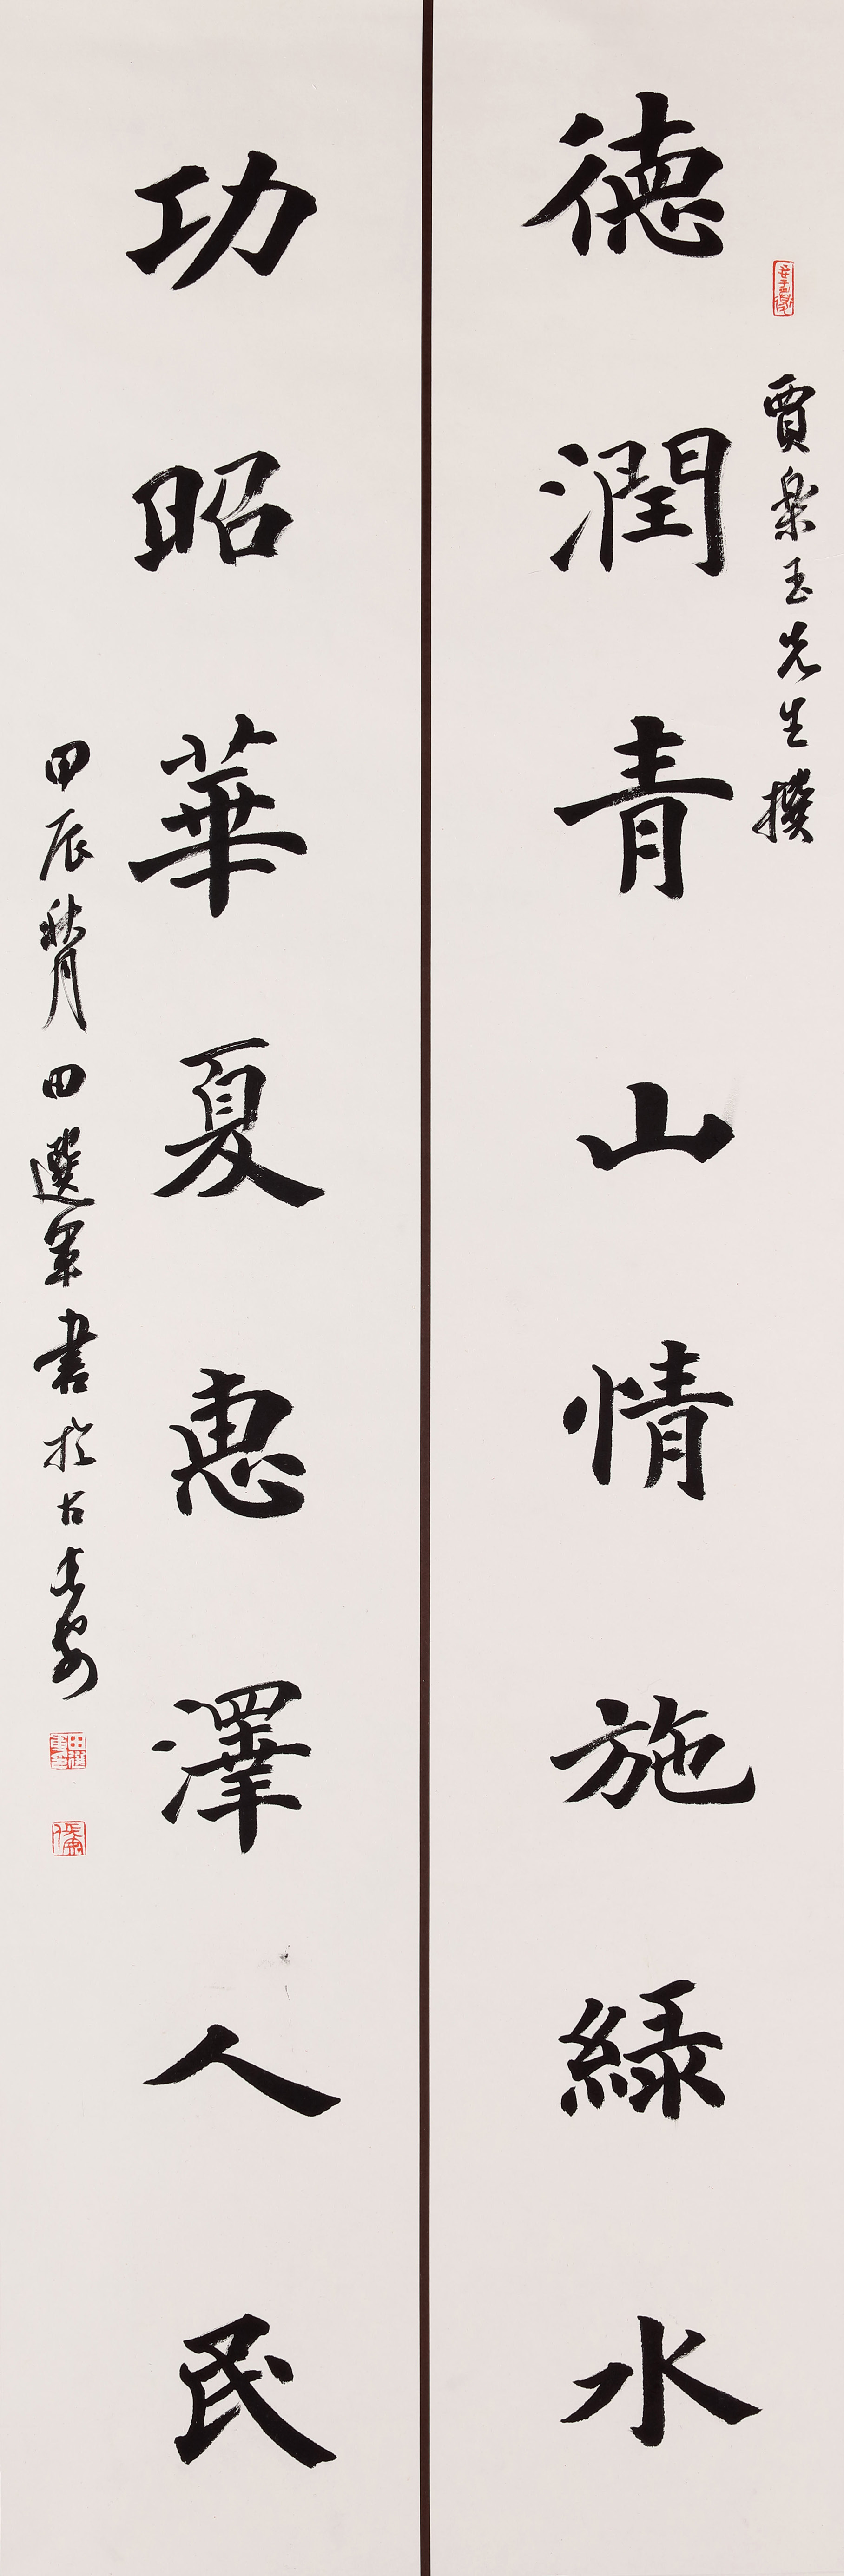 賈樂玉先生撰
德潤青山情施緑水
功昭華夏惠澤人民
甲辰秋月田選軍書於古長安